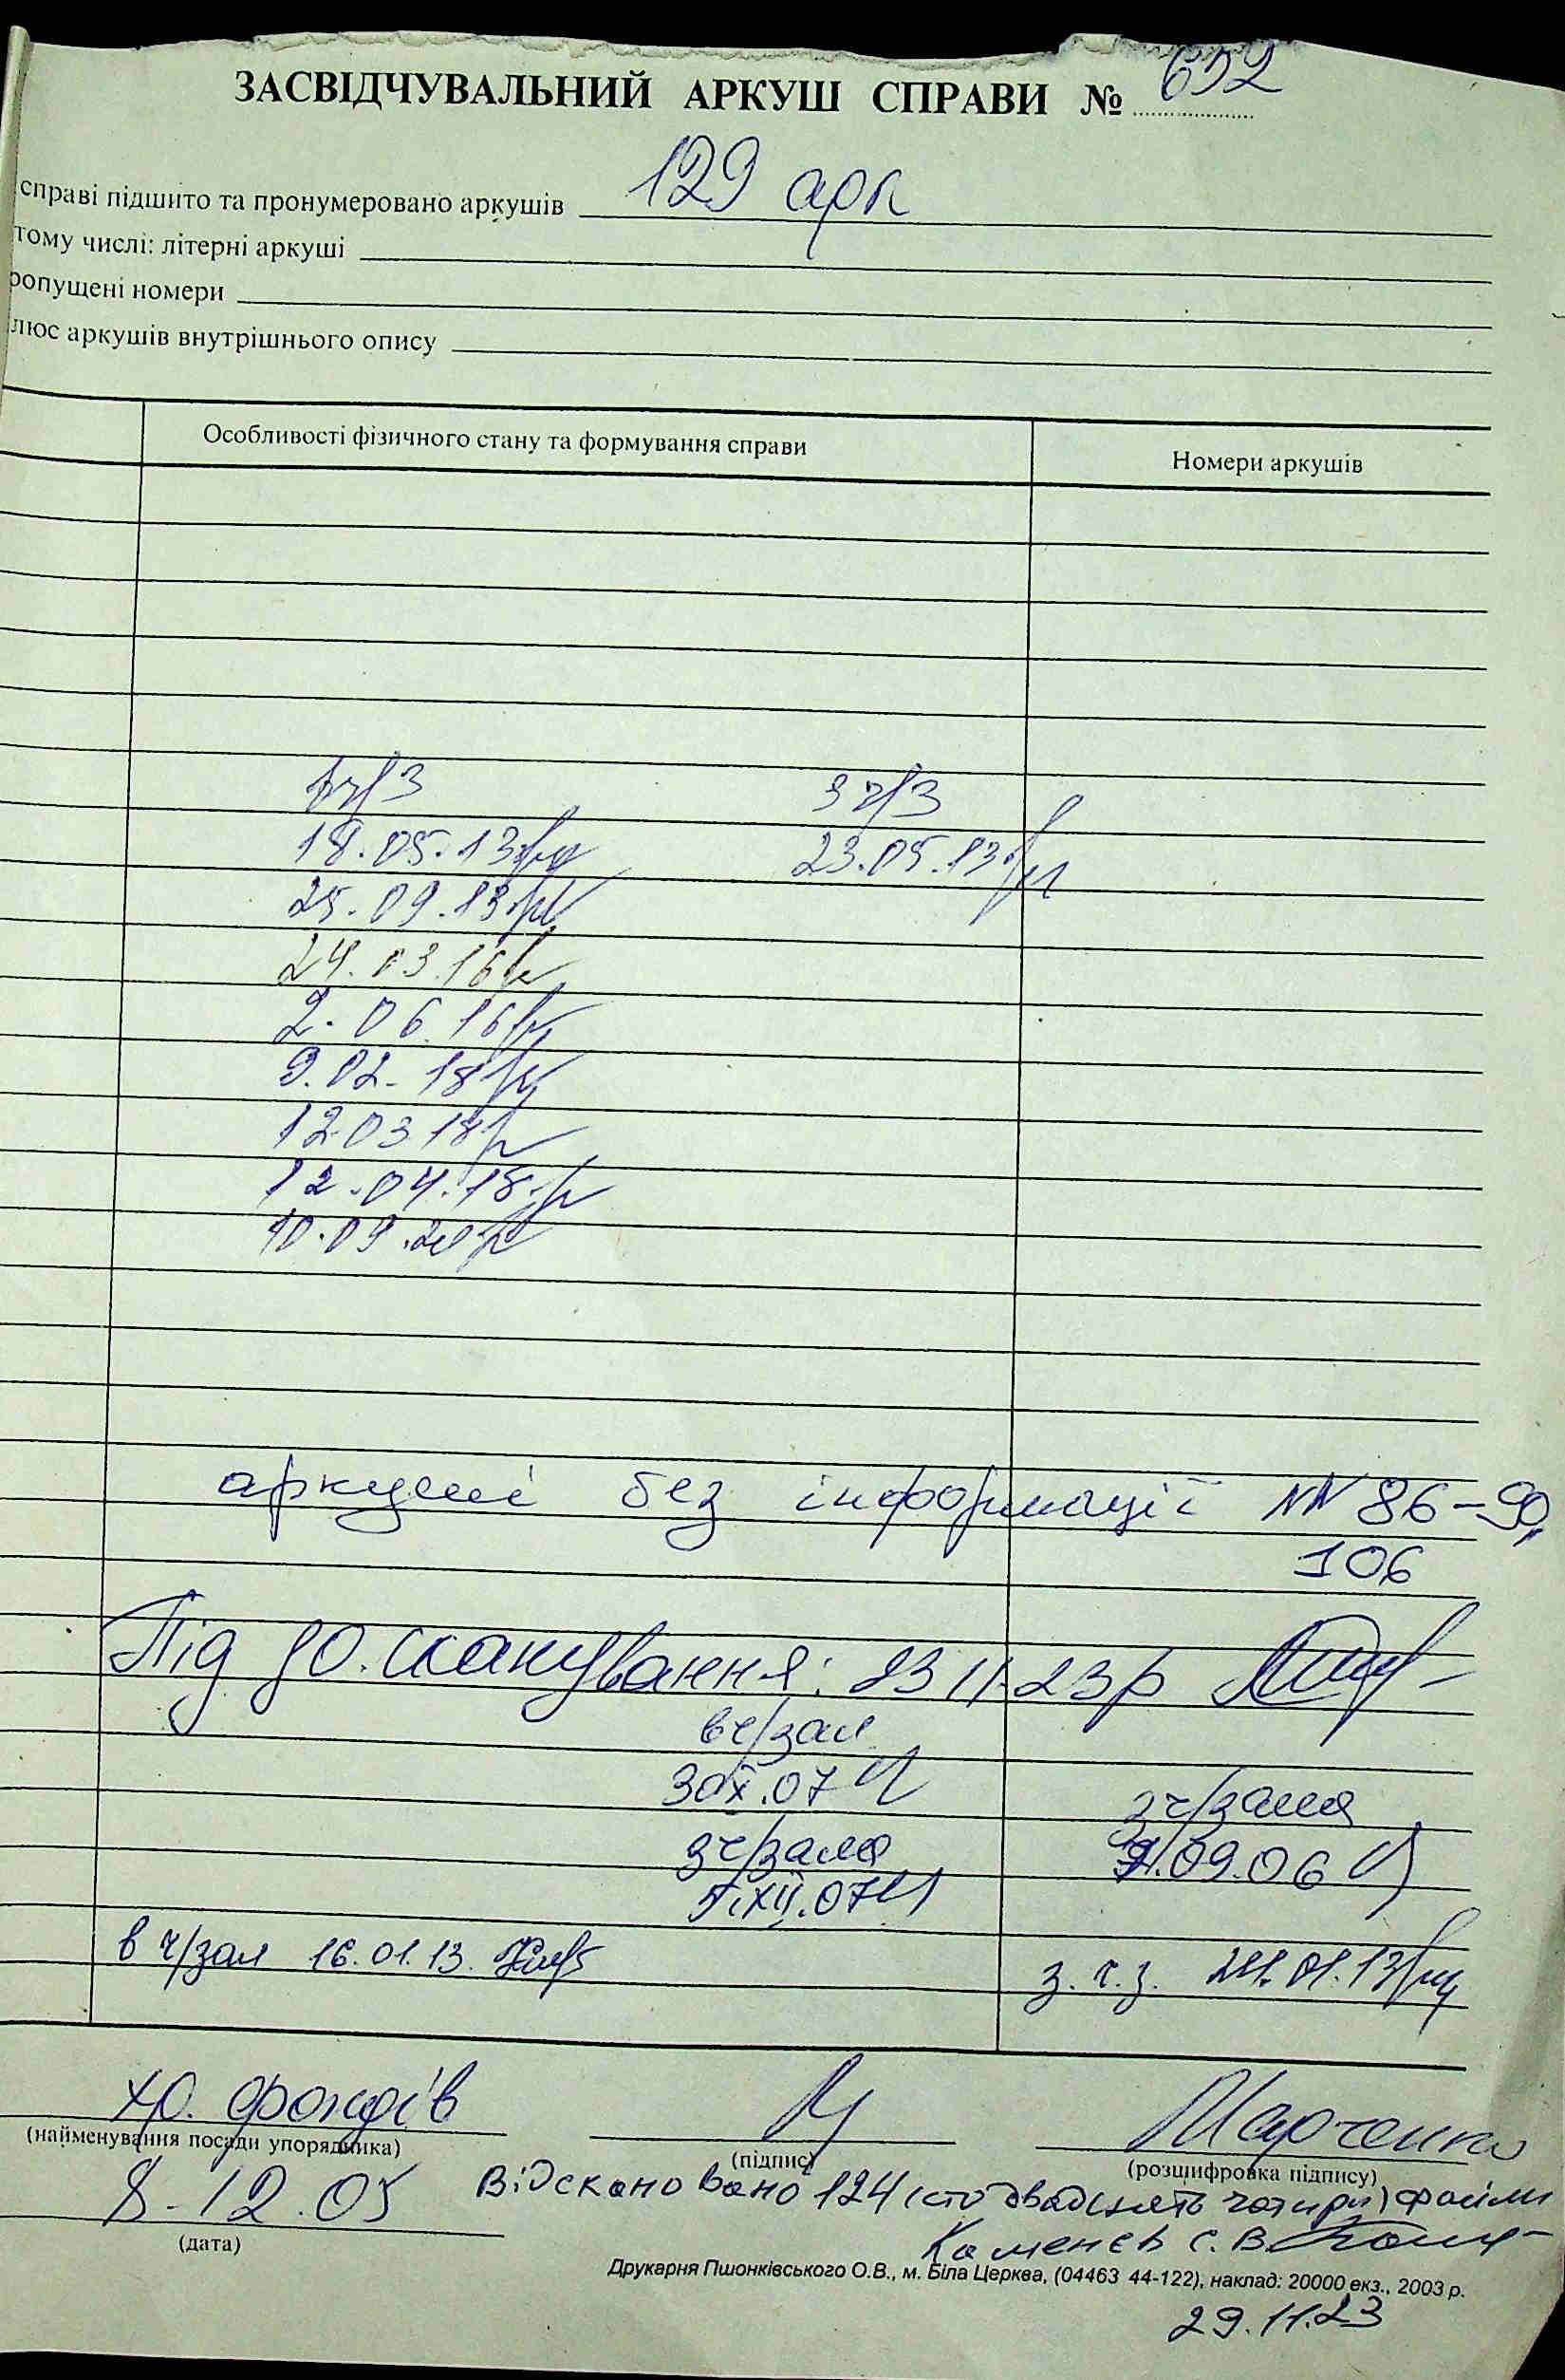 ЗАСВІДЧУВАЛЬНИЙ АРКУШ СПРАВИ № 652
справі підшито та пронумеровано аркушів 129 арк
тому числі: літерні аркуші
ропущені номери
люс аркушів внутрішнього опису
Особливості фізичного стану та формування справи Номери аркушів
в ч/з з ч/з
18.05.13 23.05.13
25.09.13
24.03.16
2.06.16
9.02.18
12.03.18
12.04.18
10.09.20
аркуші без інформації NN 86-90,
106
Під до. сканування: 23 11.23р
в ч/зал
30.X.07 з ч/зала
з ч/зала 09.06
5.XII.07
в ч/зал 16.01.13. з.ч.з. 24.01.13
хр. фондів Марченко
(найменування посади упорядника) (підпис) (розшифровка підпису)
8.12.05 Відскановано 124 (сто двадцять чотири) файли
(дата) Каменєв С.В.
Друкарня Пшонківського О.В., м. Біла Церква, (04463 44-122), наклад: 20000 екз., 2003 р.
29.11.23